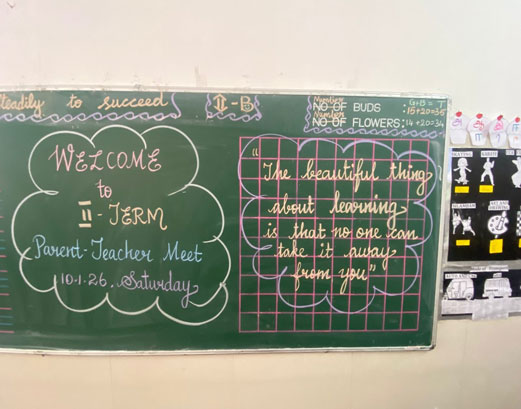 steadily to succeed
II-B
Number
NO OF BUDS
Number
NO OF FLOWERS:
G+B = T
:15+20=35
14+20=34
WELCOME
to
II-TERM
Parent-Teacher Meet
10-1-26, Saturday
"The beautiful thing
about learning
is that no one can
take it away
from you"
SKATING
KARATE